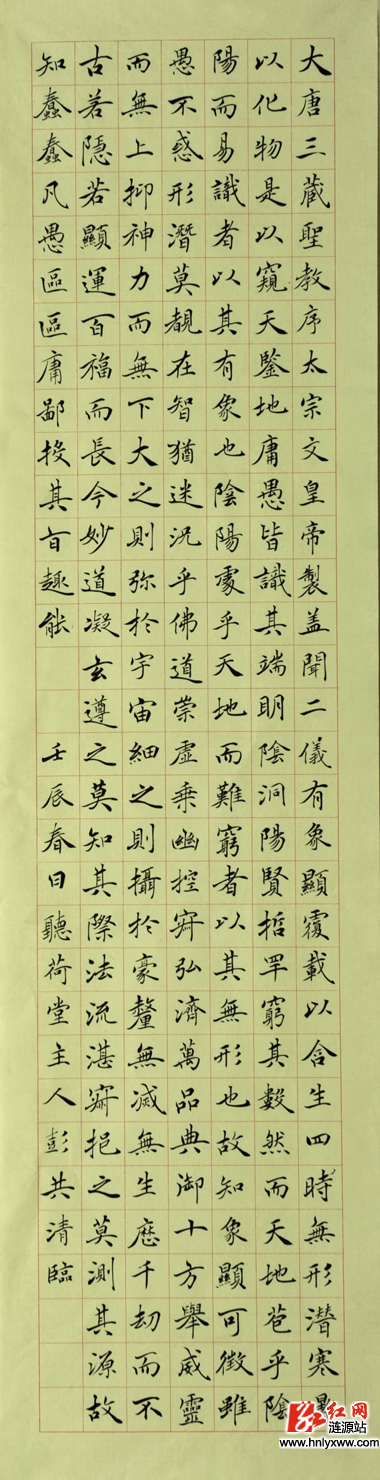 大唐三蔵聖教序太宗文皇帝製盖聞二儀有象顯覆載以含生四時無形潛寒
以化物是以窺天鑒地庸愚皆識其端明陰洞陽賢哲罕窮其數然而天地苞乎陰
陽而易識者以其有象也陰陽處乎天地而難窮者以其無形也故知象顯可徵雖
愚不惑形潛莫覩在智猶迷況乎佛道崇虛乘幽控寂弘濟萬品典御十方舉威靈
而無上抑神力而無下大之則弥於宇宙細之則攝於豪釐無滅無生歷千劫而不
古若隱若顯運百福而長今妙道凝玄遵之莫知其際法流湛寂挹之莫測其源故
知蠢蠢凡愚區區庸鄙投其旨趣能
壬辰春日聽荷堂主人彭共清臨
红网
涟源站
www.hnlyxww.com